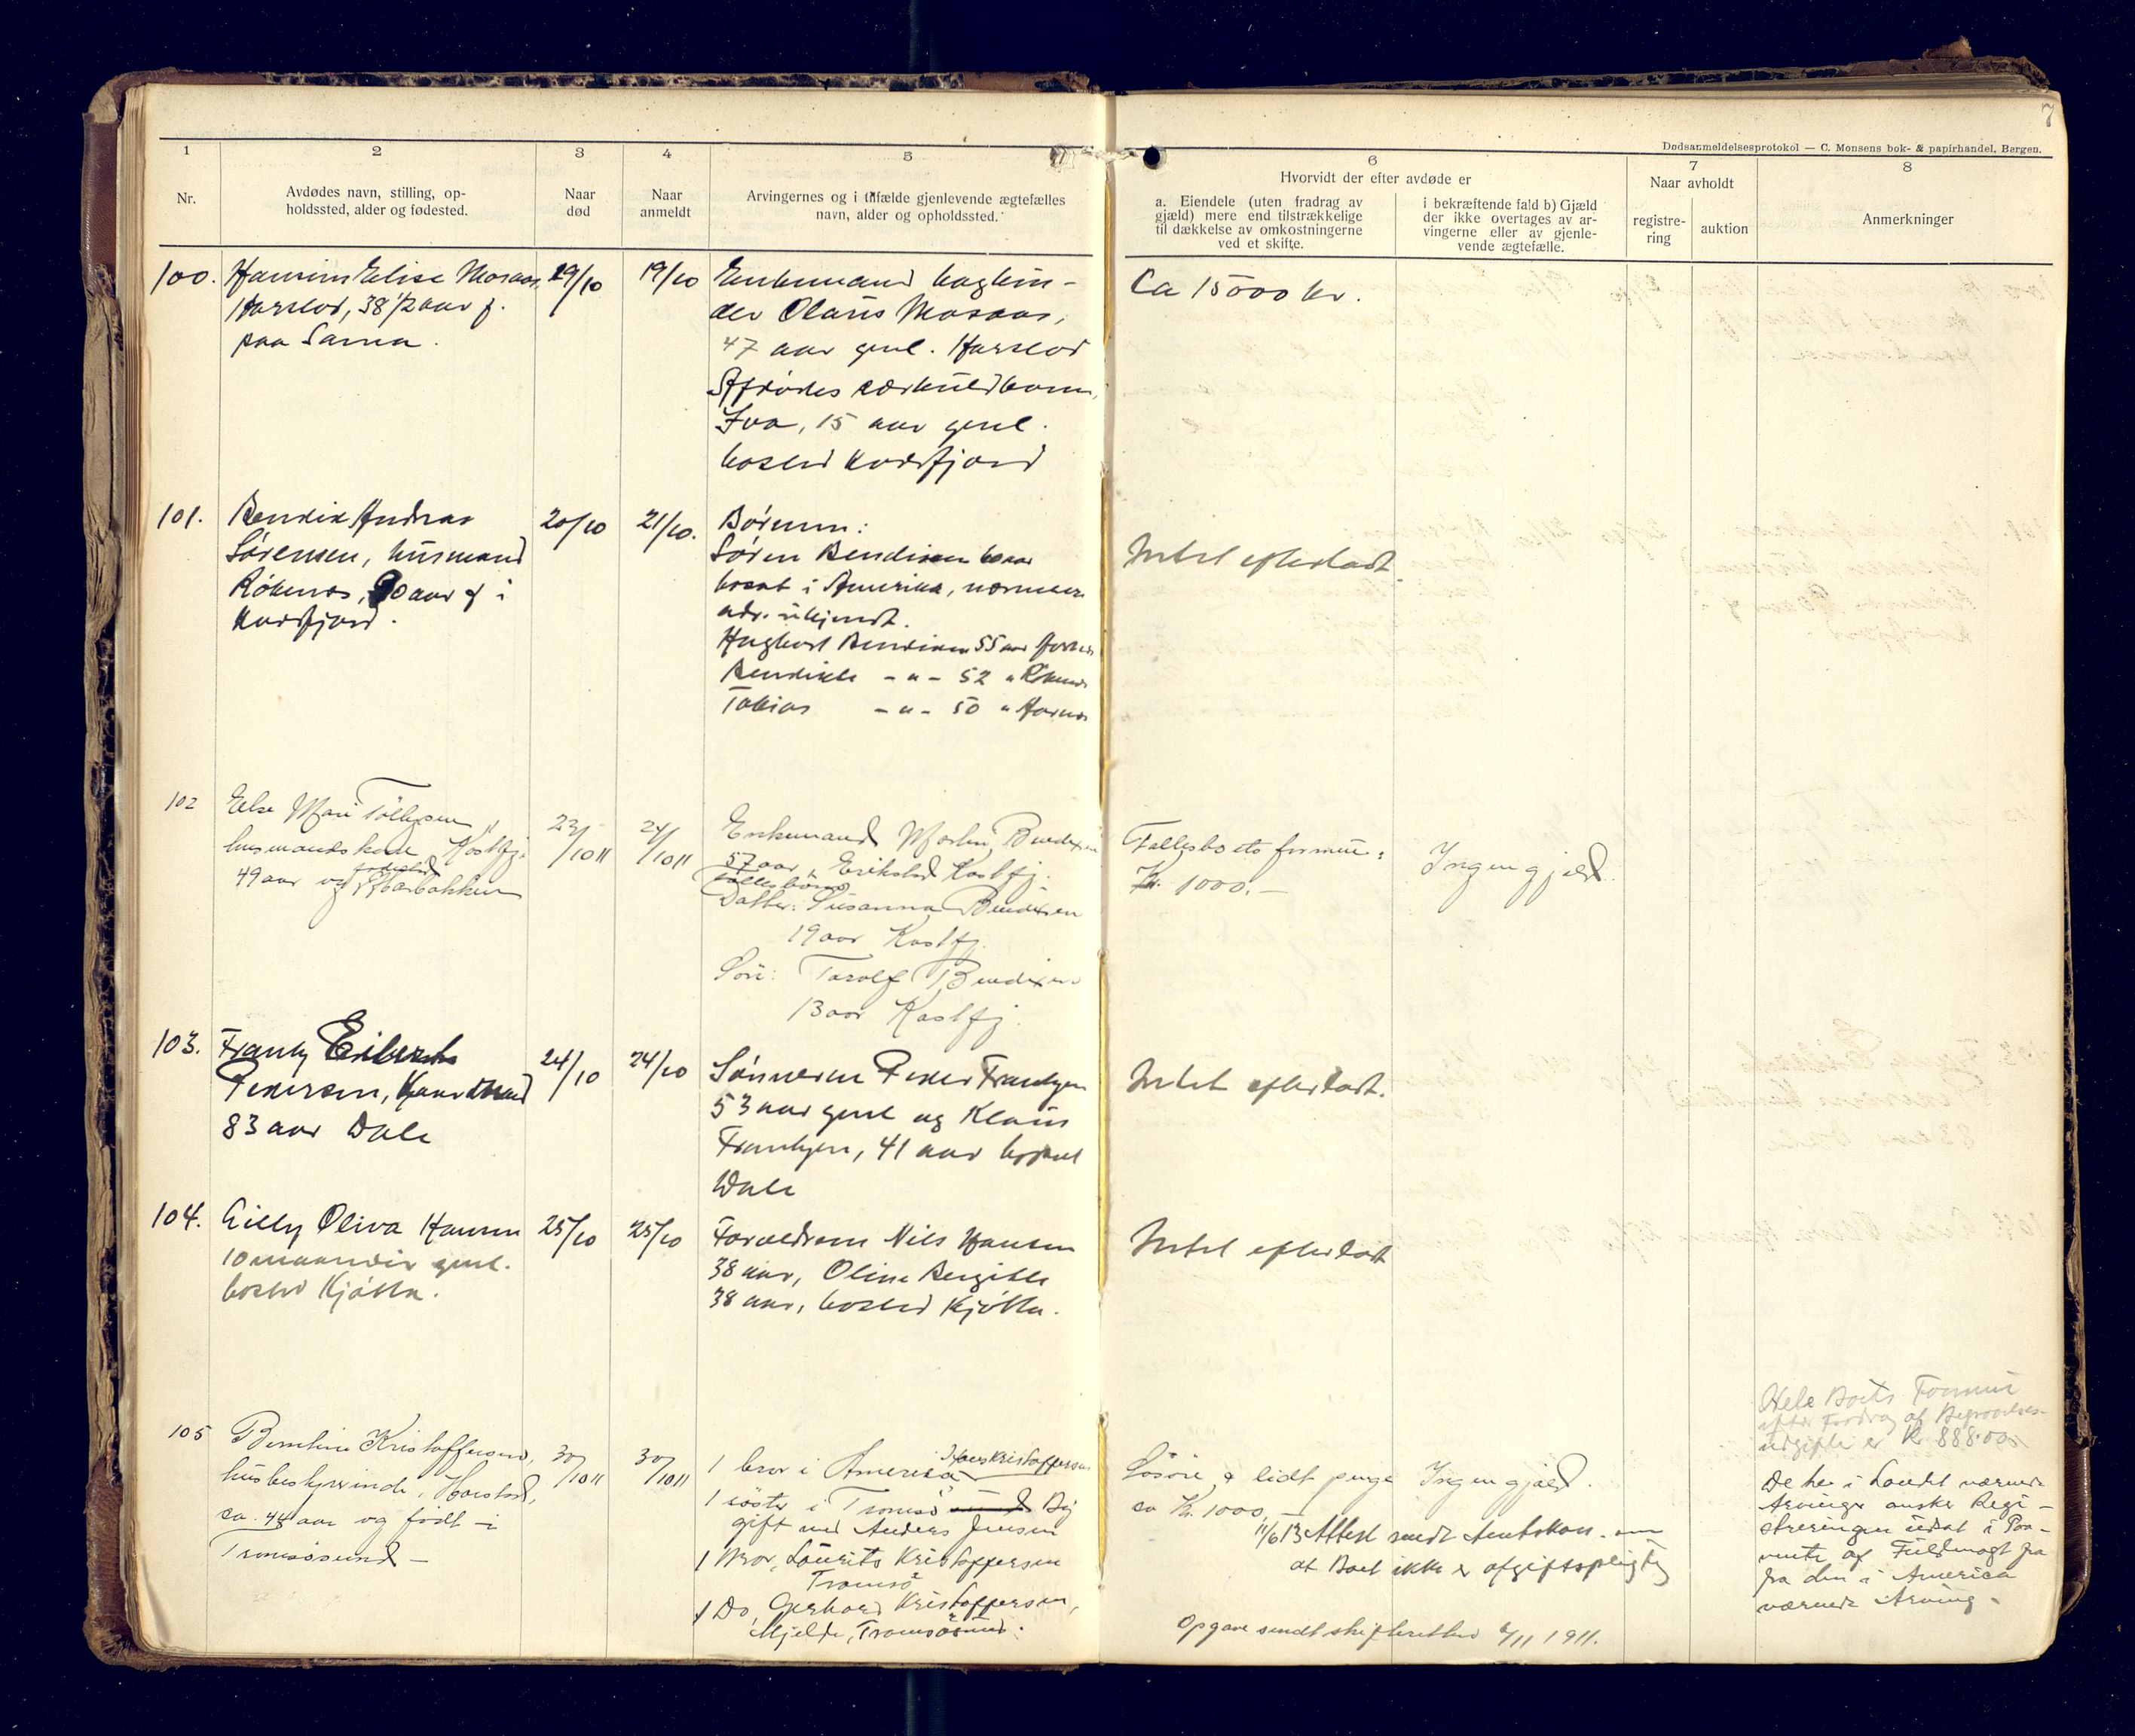 7
Dødsanmeldelsesprotokol — C. Monsens bok- & papirhandel, Bergen.
1
2
3
4
5
6
7
8
Nr.
Avdødes navn, stilling, op-
holdssted, alder og fødested.
Naar
død
Naar
anmeldt
Arvingernes og i tilfælde gjenlevende ægtefælles
navn, alder og opholdssted.
Hvorvidt der efter avdøde er
a. Eiendele (uten fradrag av
gjæld) mere end tilstrækkelige
til dækkelse av omkostningerne
ved et skifte.
i bekræftende fald b) Gjæld
der ikke overtages av ar-
vingerne eller av gjenle-
vende ægtefælle.
Naar avholdt
registre-
ring
auktion
Anmerkninger
100.
Elise
Harstad, 38 1/2 aar f.
paa
19/10
19/10
Enkemand
Olaus
47 aar gml. Harstad
Afdødes særkuldbarn,
15 aar gml.
bosted Kasfjord
Ca 15000 kr.
101.
Bendix Andreas
Sørensen, husmand
Røkenes, 90 aar f i
Kasfjord.
20/10
21/10.
Børnene:
Søren Bendixen 60 aar
bosat i Amerika, nærmere
adr. ukjendt.
Hagbart Bendixen 55 aar
Bendikte - " - 52 " Røkenes
Tobias - " - 50 "
Intet efterladt.
102
Else Mari
husmandskone Kasfj.
49 aar og fødested
23/10 11
24/10 11
Enkemand Martin Bendixen
57 aar, Erikstad Kasfj.
Fællesbørn
Datter: Susanna Bendixen
19 aar Kasfj.
Søn: Tarolf Bendixen
13 aar Kasfj.
Fællesboets formue:
Kr. 1000.—
Ingen gjæld.
103.
Frantz
Pedersen,
83 aar Dale
24/10
24/10
Sønnerne Peder Frantzen
53 aar gml og Klaus
Frantzen, 41 aar bosat
Dale
Intet efterladt.
104.
Lilly Oliva Hansen
10 maaneder gml.
bosted Kjøtta.
25/10
25/10
Forældrene Nils Hansen
38 aar, Oline Bergitte
38 aar, bosted Kjøtta.
Intet efterladt
105
Kristoffersen,
husbestyrerinde, Harstad,
ca. 44 aar og født i
Tromsøsund —
30/10 11
30/10 11
1 bror i Amerika Kristoffersen
1 søster i Tromsø By
gift med Anders Jensen
1 Bror, Laurits Kristoffersen
Tromsø
1 Do, Gerhard Kristoffersen,
Mjelde, Tromsøsund.
Løsøre & lidt penge
ca Kr. 1000.—
Ingen gjæld.
11/6 13 Attest sendt Amtskon. om
at Boet ikke er afgiftspligtig
Opgave sendt skifteretten /11 1911.
Hele Boets Formue
efter Fradrag af Begravelses-
udgifter er Kr 888.00
De her i Landet værende
Arvinger ønsker Regi-
streringen udsat i Paa-
vente af Fuldmagt fra
fra den i America
værende Arving.